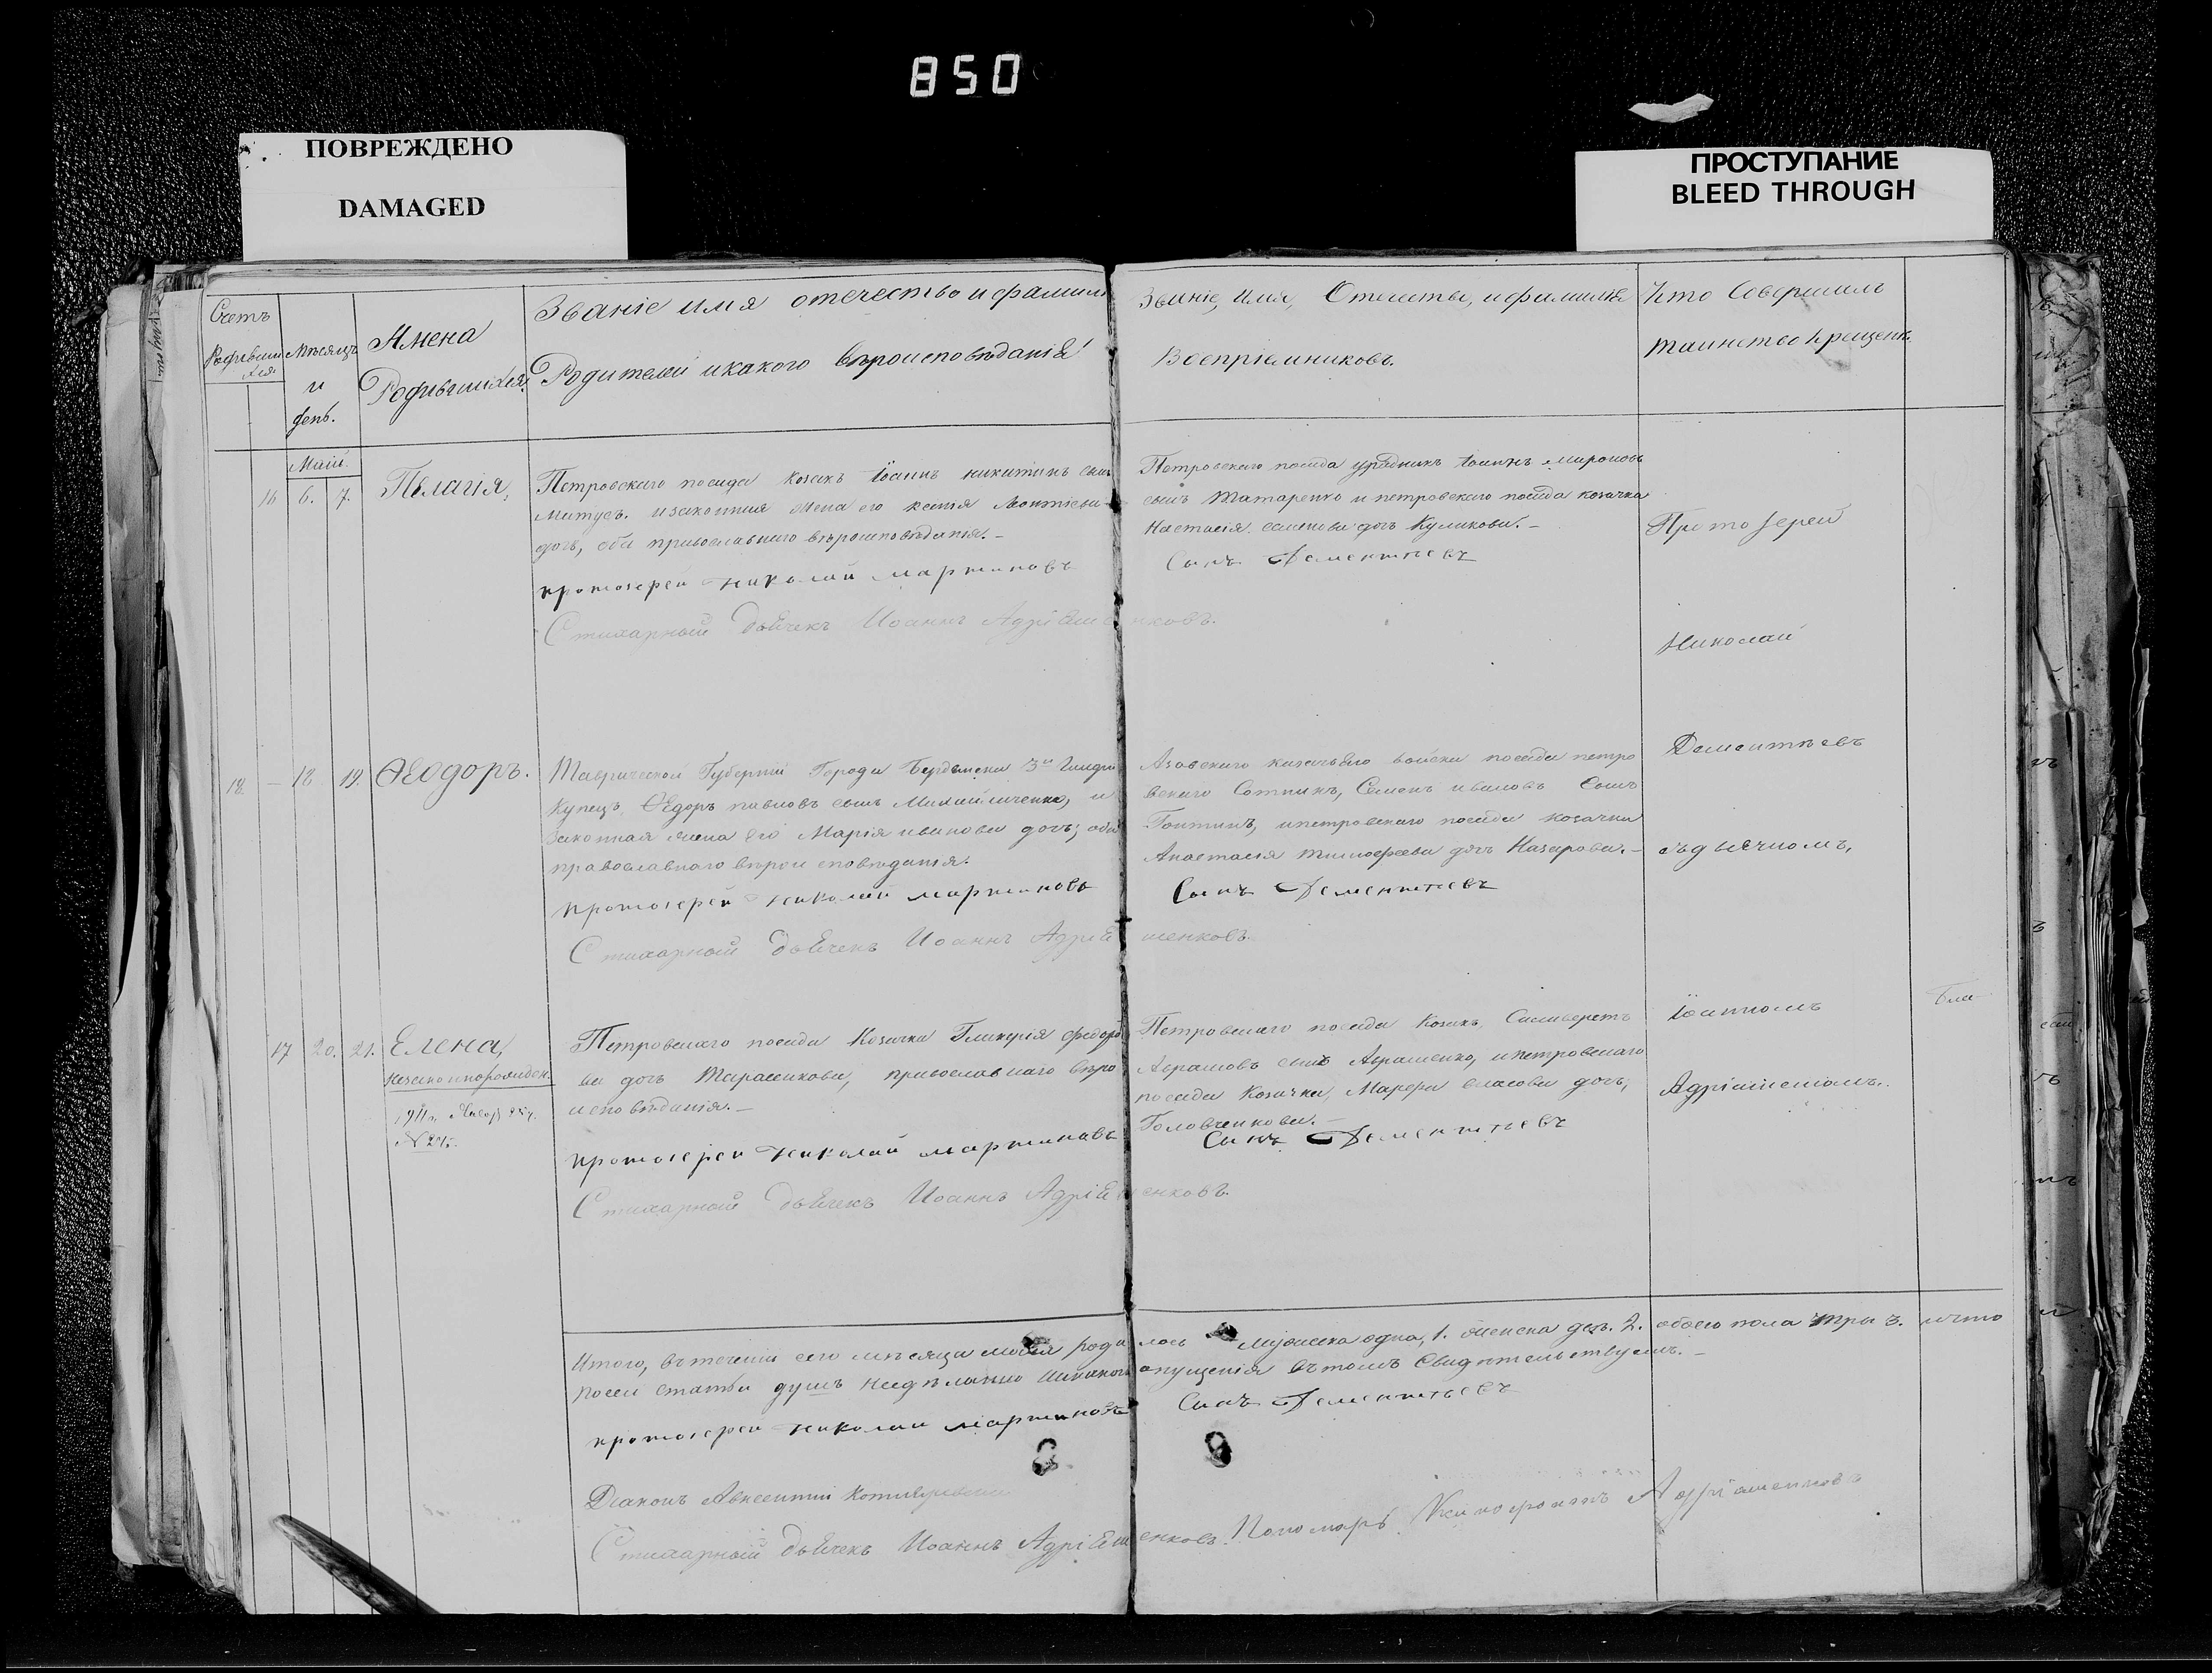 850
ПОВРЕЖДЕНО
DAMAGED
ПРОСТУПАНИЕ
BLEED THROUGH
Счетъ
Мѣсяцъ
и
день.
Имена
Родившихся.
Званіе имя отечество и фамилія
Родителей и какого вѣроисповѣданія
Званіе, Имя, Отечество, и фамилія
Воспріемниковъ.
Кто Совершилъ
таинство Крещенія
Маій.
16 6. 7.
Пелагія,
Петровскаго посада козакъ Іоаннъ никитинъ сынъ
Митусъ. и законная жена его ксенія Леонтіева
дочь, оба православнаго вѣроисповѣданія. –
протоіерей николай мартиновъ
Стихарный дьячекъ Иоаннъ Адріяшенковъ.
Петровскаго посада урядникъ Іоаннъ мироновъ
сынъ Татаренко и петровскаго посада козачка
Настасія семенова дочь Куликова. –
Сынъ Дементьевъ
Протоіерей
Николай
Дементьевъ
съ дьячкомъ,
Іоанномъ
Адріяшенкомъ.
12 – 18 19.
Ѳеодоръ.
Таврической Губерніи Города Бердянска 3й Гильдіи
Купецъ, Ѳедоръ павловъ сынъ Михайличенко, и
законная жена его Марія иванова дочь; оба
православнаго вѣроисповѣданія.
протоіерей николай мартиновъ
Стихарный дьячекъ Иоаннъ Адріяшенковъ.
Азовскаго казачьяго войска посада петро
вскаго Сотникъ, Семенъ ивановъ Сынъ
и петровскаго посада козачка
Анастасія тимофеева дочь Назарова. –
Сынъ Дементьевъ
17 20. 21.
Елена,
незаконнорожден.
Петровскаго посада Козачка Гликерія федоро
ва дочь Тарасенкова, православнаго вѣро
исповѣданія. –
протоіерей николай мартиновъ
Стихарный дьячекъ Иоаннъ Адріяшенковъ.
Петровскаго посада Козакъ, Силиверстъ
Абрамовъ сынъ Абраменко, и петровскаго
посада Козачка, Марфа власова дочь,
Головченкова. –
Сынъ Дементьевъ
Итого, въ теченіи сего мѣсяца маія родилось мужеска одна, 1. женска двѣ. 2. обоего пола три 3. и что
по сей статьи душъ недѣланно никакого опущенія въ томъ Свидѣтельствуемъ. –
протоіерей николай мартиновъ Сынъ Дементьевъ
Діаконъ Авксентій
Стихарный дьячекъ Иоаннъ Адріяшенковъ. Пономарь Адріяшенковъ